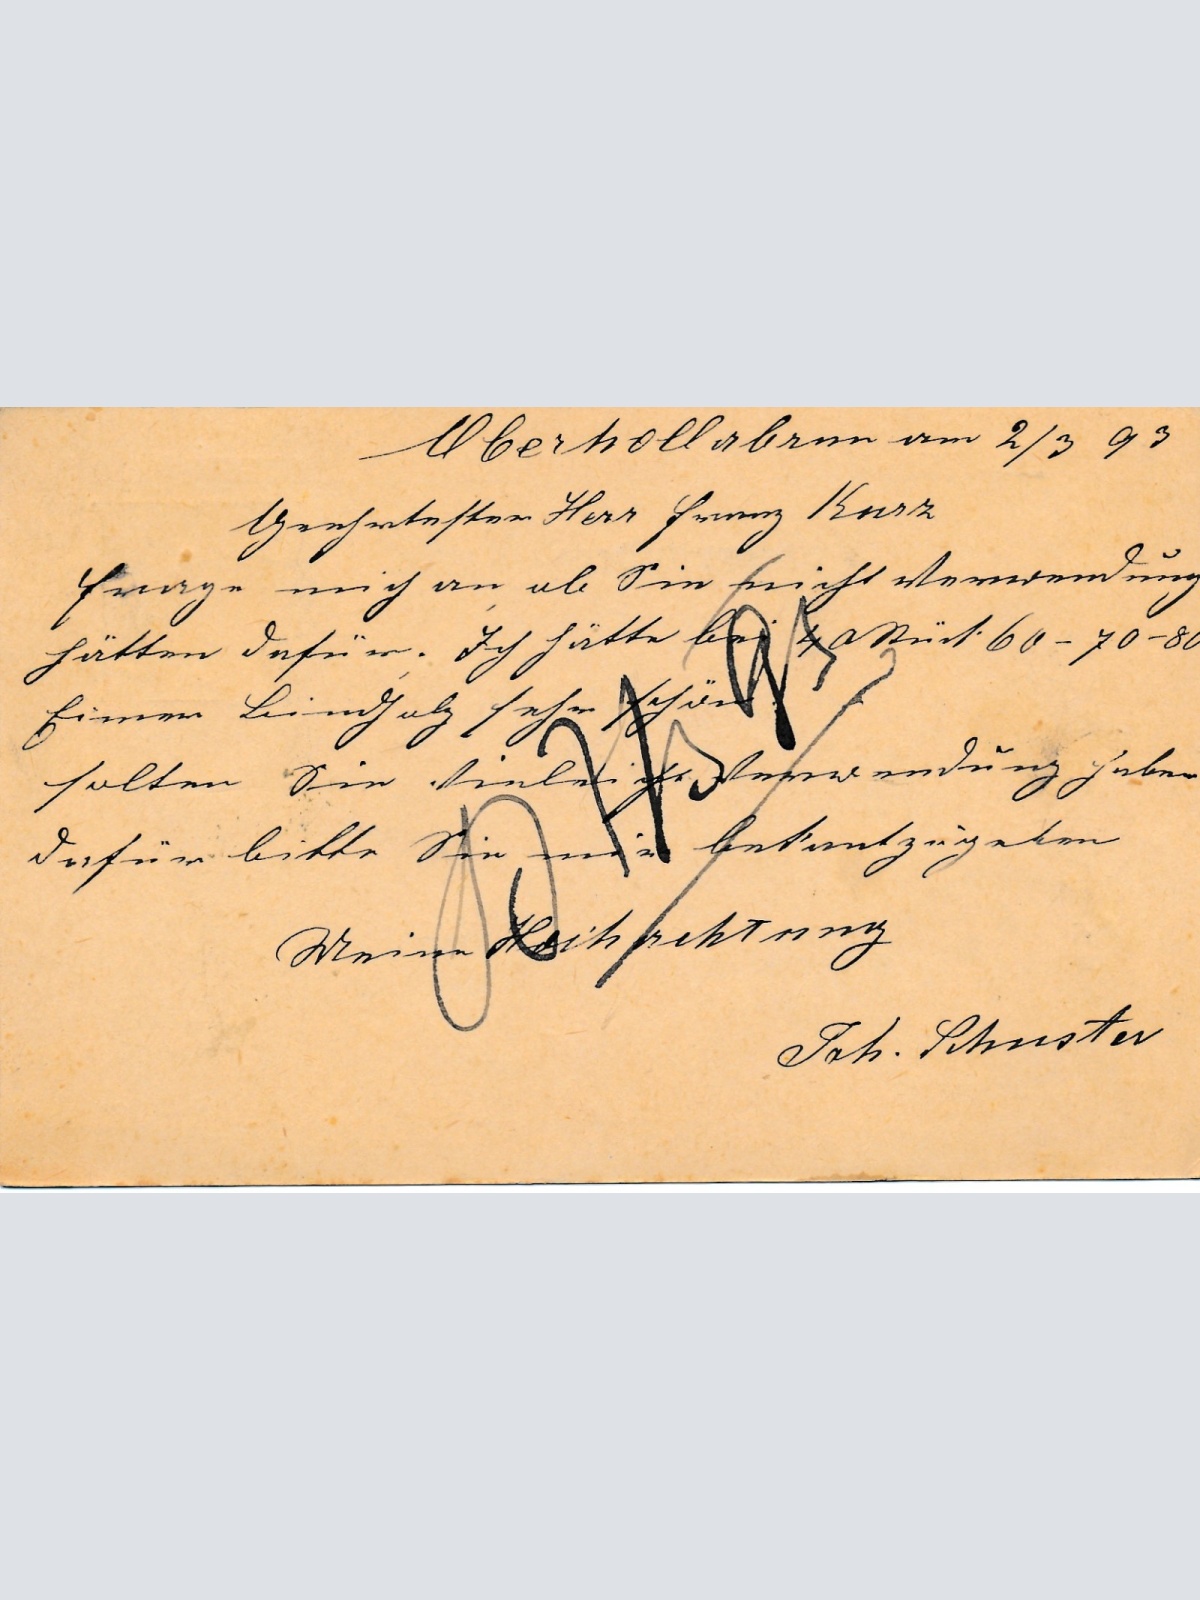 Oberhollabrun am 2/3 93
Geehrtester Herr Franz Kurz
Frage mich an ob Sie nicht Verwendung
hätten dafür. Ich hätte bei 40 Stück 60 - 70 - 80
Eimer Bindholz sehr schön
solten Sie Vieleicht Verwendung haben
dafür bitte Sie mir bekantzugeben
Meine Hochachtung
Joh. Schuster